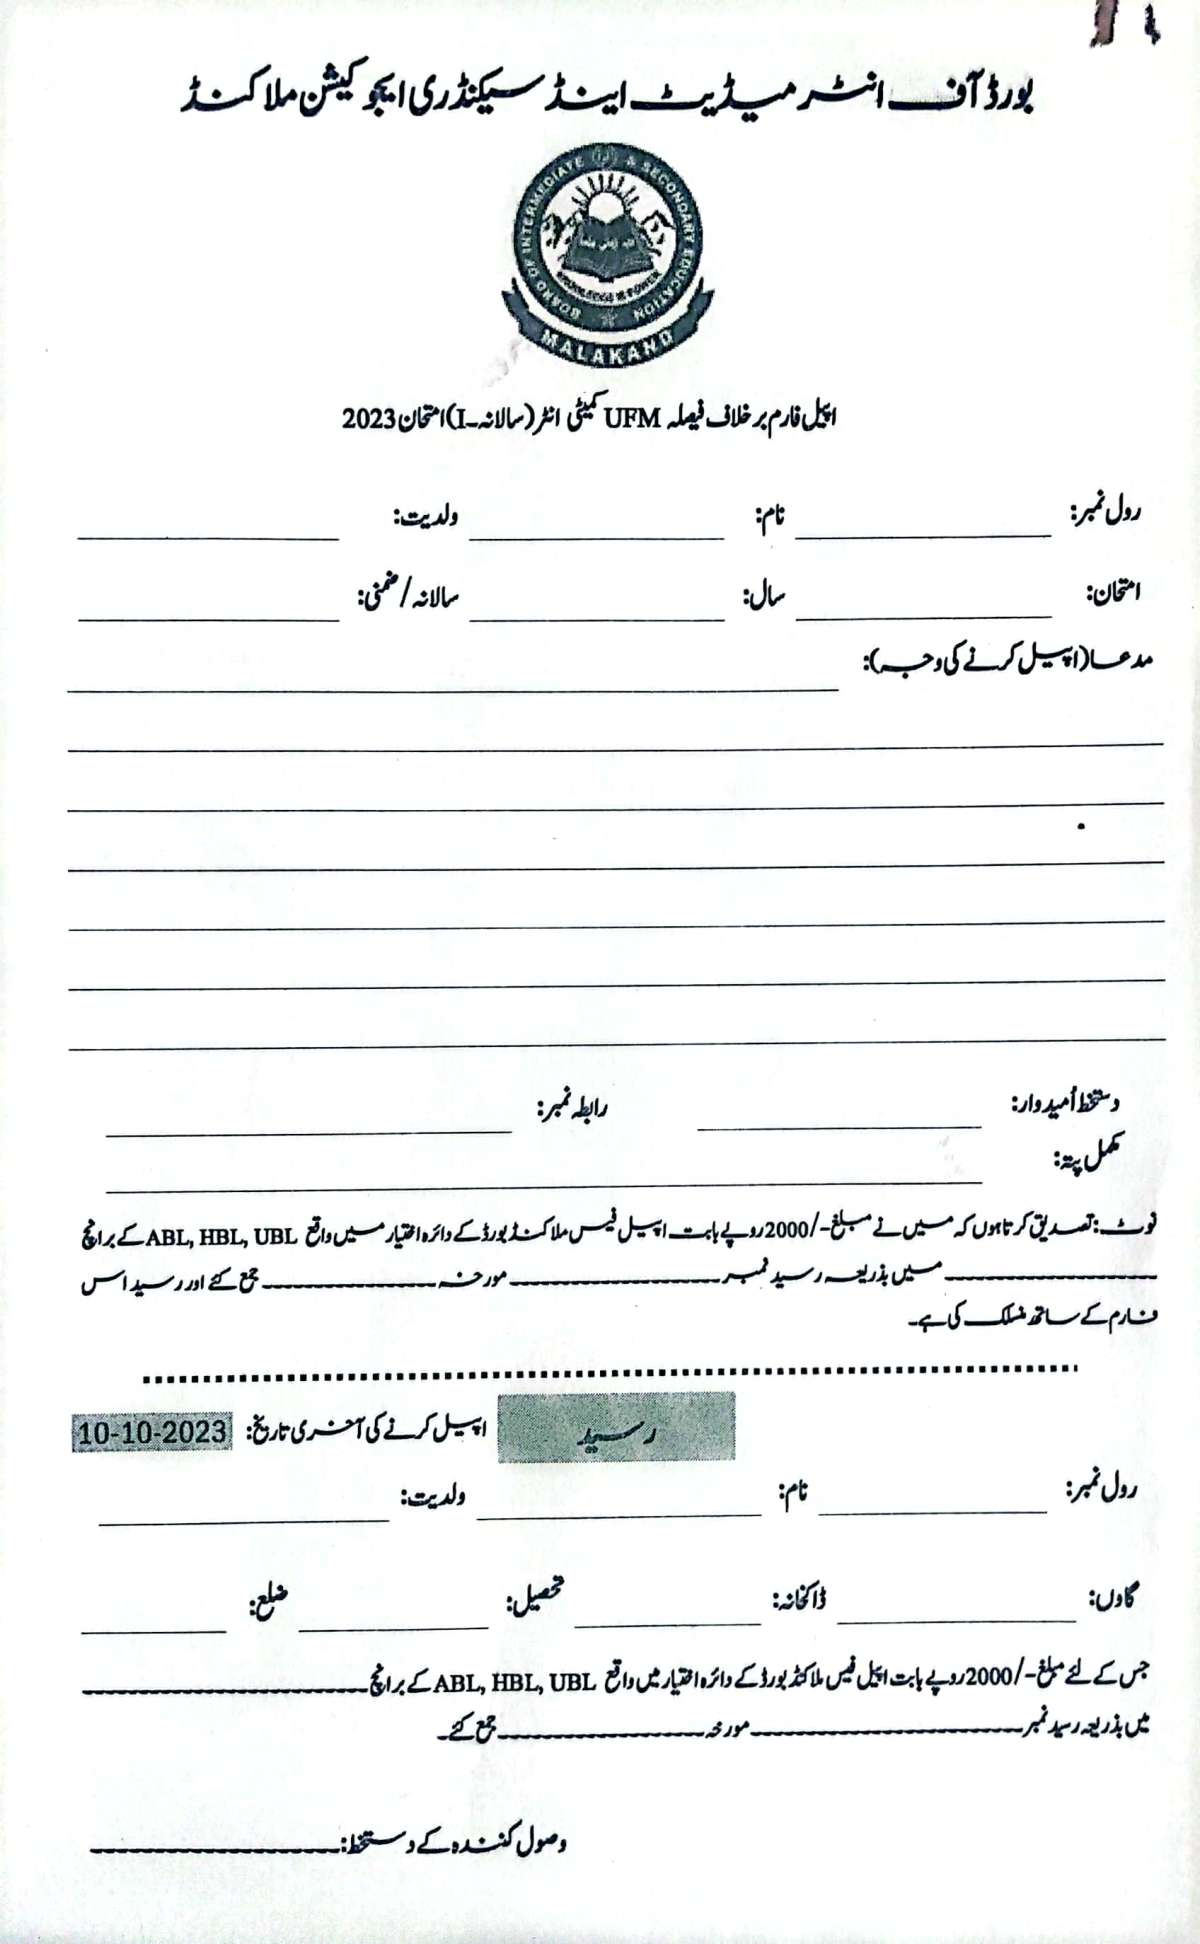 بورڈ آف انٹرمیڈیٹ اینڈ سیکنڈری ایجوکیشن ملاکنڈ
BOARD OF INTERMEDIATE & SECONDARY EDUCATION
KNOWLEDGE IS POWER
MALAKAND
اپیل فارم برخلاف فیصلہ UFM کمیٹی انٹر (سالانہ-I) امتحان 2023
رول نمبر: نام: ولدیت:
امتحان: سال: سالانہ/ضمنی:
مدعا (اپیل کرنے کی وجہ):
دستخط اُمیدوار: رابطہ نمبر:
مکمل پتہ:
نوٹ: تصدیق کرتا ہوں کہ میں نے مبلغ -/2000 روپے بابت اپیل فیس ملاکنڈ بورڈ کے دائرہ اختیار میں واقع ABL, HBL, UBL کے برانچ
میں بذریعہ رسید نمبر مورخہ جمع کئے اور رسید اس
فارم کے ساتھ منسلک کی ہے۔
رسید اپیل کرنے کی آخری تاریخ: 10-10-2023
رول نمبر: نام: ولدیت:
گاوں: ڈاکخانہ: تحصیل: ضلع:
جس کے لئے مبلغ -/2000 روپے بابت اپیل فیس ملاکنڈ بورڈ کے دائرہ اختیار میں واقع ABL, HBL, UBL کے برانچ
میں بذریعہ رسید نمبر مورخہ جمع کئے۔
وصول کنندہ کے دستخط: